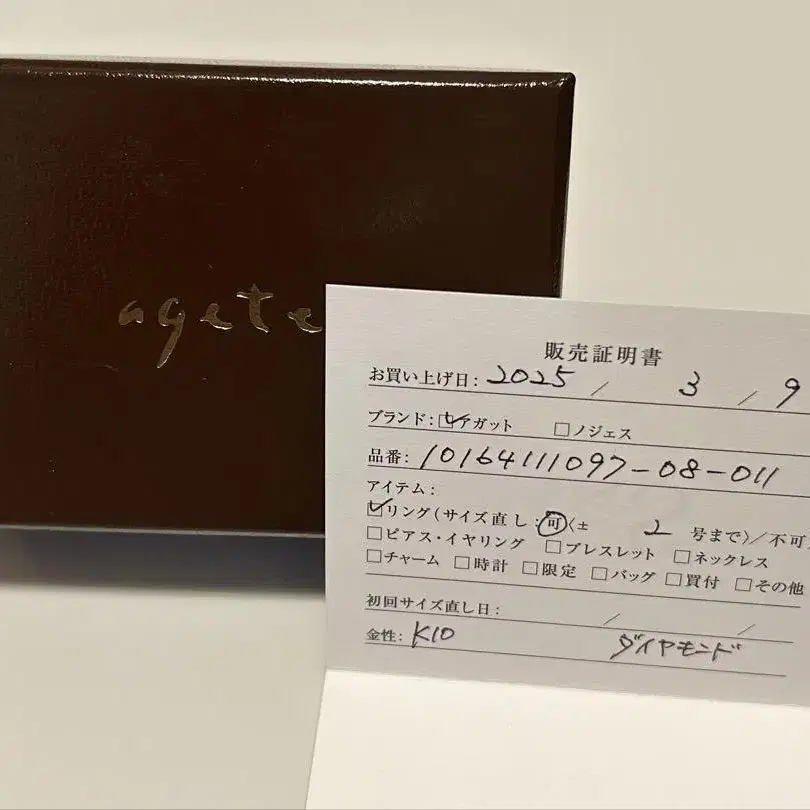 agete
販売証明書
お買い上げ日: 2025 / 3 / 9
ブランド: ☑アガット □ノジェス
品番: 10164111097-08-011
アイテム:
☑リング(サイズ直し:可〈± 2 号まで〉/不可
□ピアス・イヤリング □ブレスレット □ネックレス
□チャーム □時計 □限定 □バッグ □買付 □その他
初回サイズ直し日: / /
金性: K10 ダイヤモンド